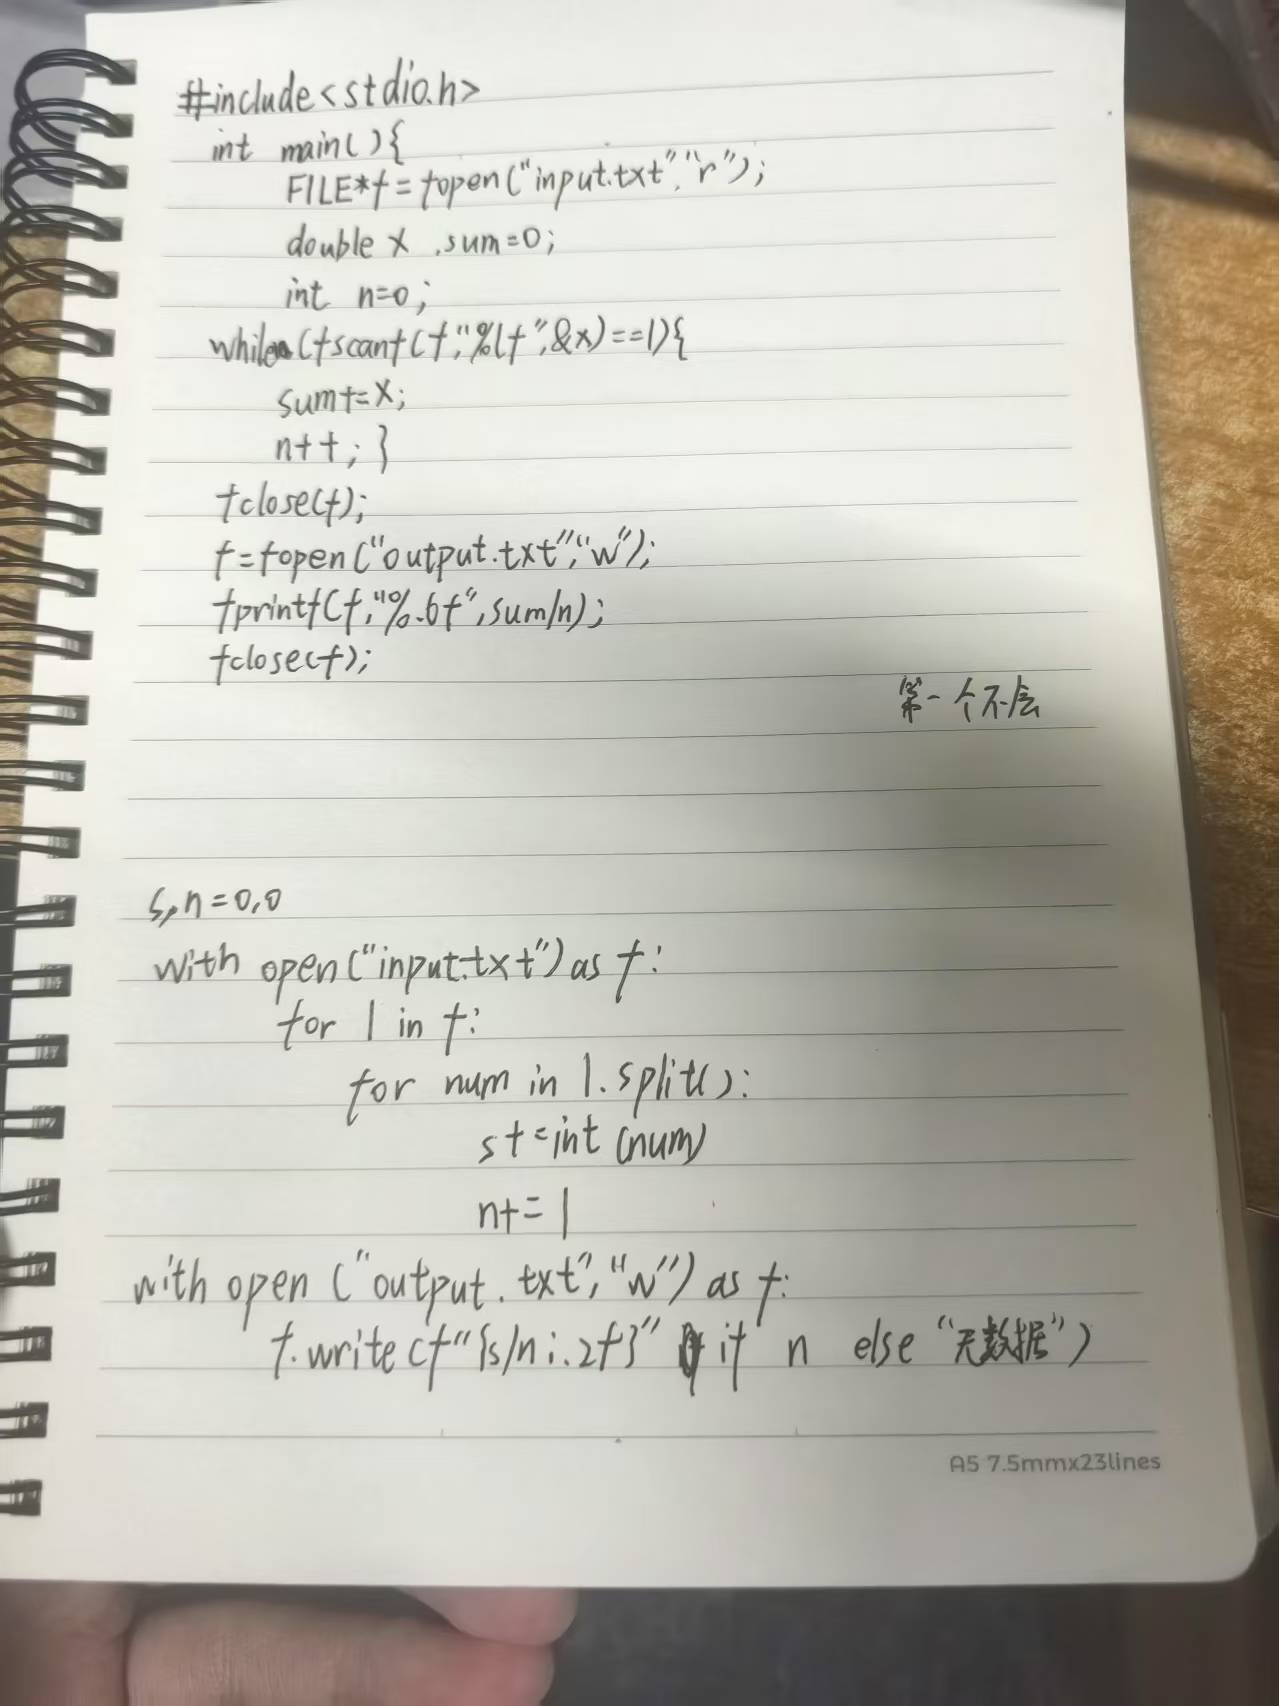 #include<stdio.h>
int main(){
FILE*f=fopen("input.txt","r");
double x,sum=0;
int n=0;
while(fscanf(f,"%lf",&x)==1){
sum+=x;
n++;}
fclose(f);
f=fopen("output.txt","w");
fprintf(f,"%.6f",sum/n);
fclose(f);
第一个不会
s,n=0,0
with open("input.txt")as f:
for l in f:
for num in l.split():
s+=int(num)
n+=1
with open("output.txt","w") as f:
f.write(f"{s/n:.2f}" if n else "无数据")
A5 7.5mmx23lines